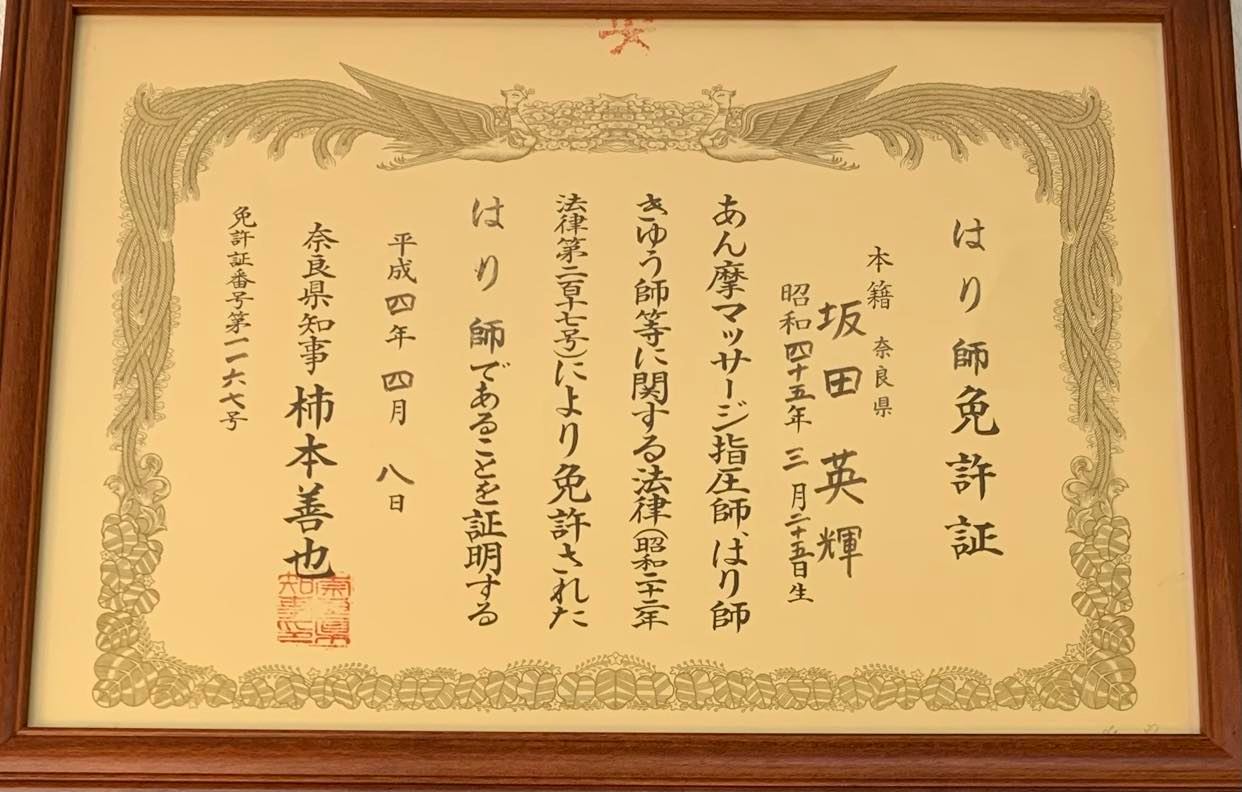 はり師免許証
本籍 奈良県
坂田英輝
昭和四十五年三月二十五日生
あん摩マッサージ指圧師、はり師
きゆう師等に関する法律(昭和二十二年
法律第二百十七号)により免許された
はり師であることを証明する
平成四年四月八日
奈良県知事 柿本善也
奈良県知事印
免許証番号第一一六六七号